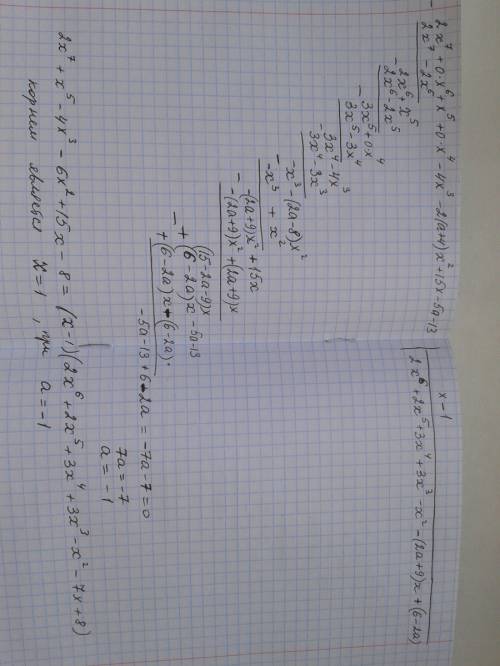 2x⁷ + 0·x⁶ + x⁵ + 0·x⁴ - 4x³ - 2(a+4)x² + 15x - 5a - 13 | x - 1
- 2x⁷ - 2x⁶
2x⁶ + 2x⁵ + 3x⁴ + 3x³ - x² - (2a+9)x + (6-2a)
2x⁶ + x⁵
- 2x⁶ - 2x⁵
3x⁵ + 0·x⁴
- 3x⁵ - 3x⁴
3x⁴ - 4x³
- 3x⁴ - 3x³
-x³ - (2a-8)x²
- -x³ + x²
-(2a+9)x² + 15x
- -(2a+9)x² + (2a+9)x
(15-2a-9)x
(6-2a)x - 5a-13
- + (6-2a)x - (6-2a)·
-5a-13+6-2a = -7a-7=0
7a=-7
a=-1
2x⁷ + x⁵ - 4x³ - 6x² + 15x - 8 = (x-1)(2x⁶ + 2x⁵ + 3x⁴ + 3x³ - x² - 7x + 8)
корнем является x=1, при a=-1